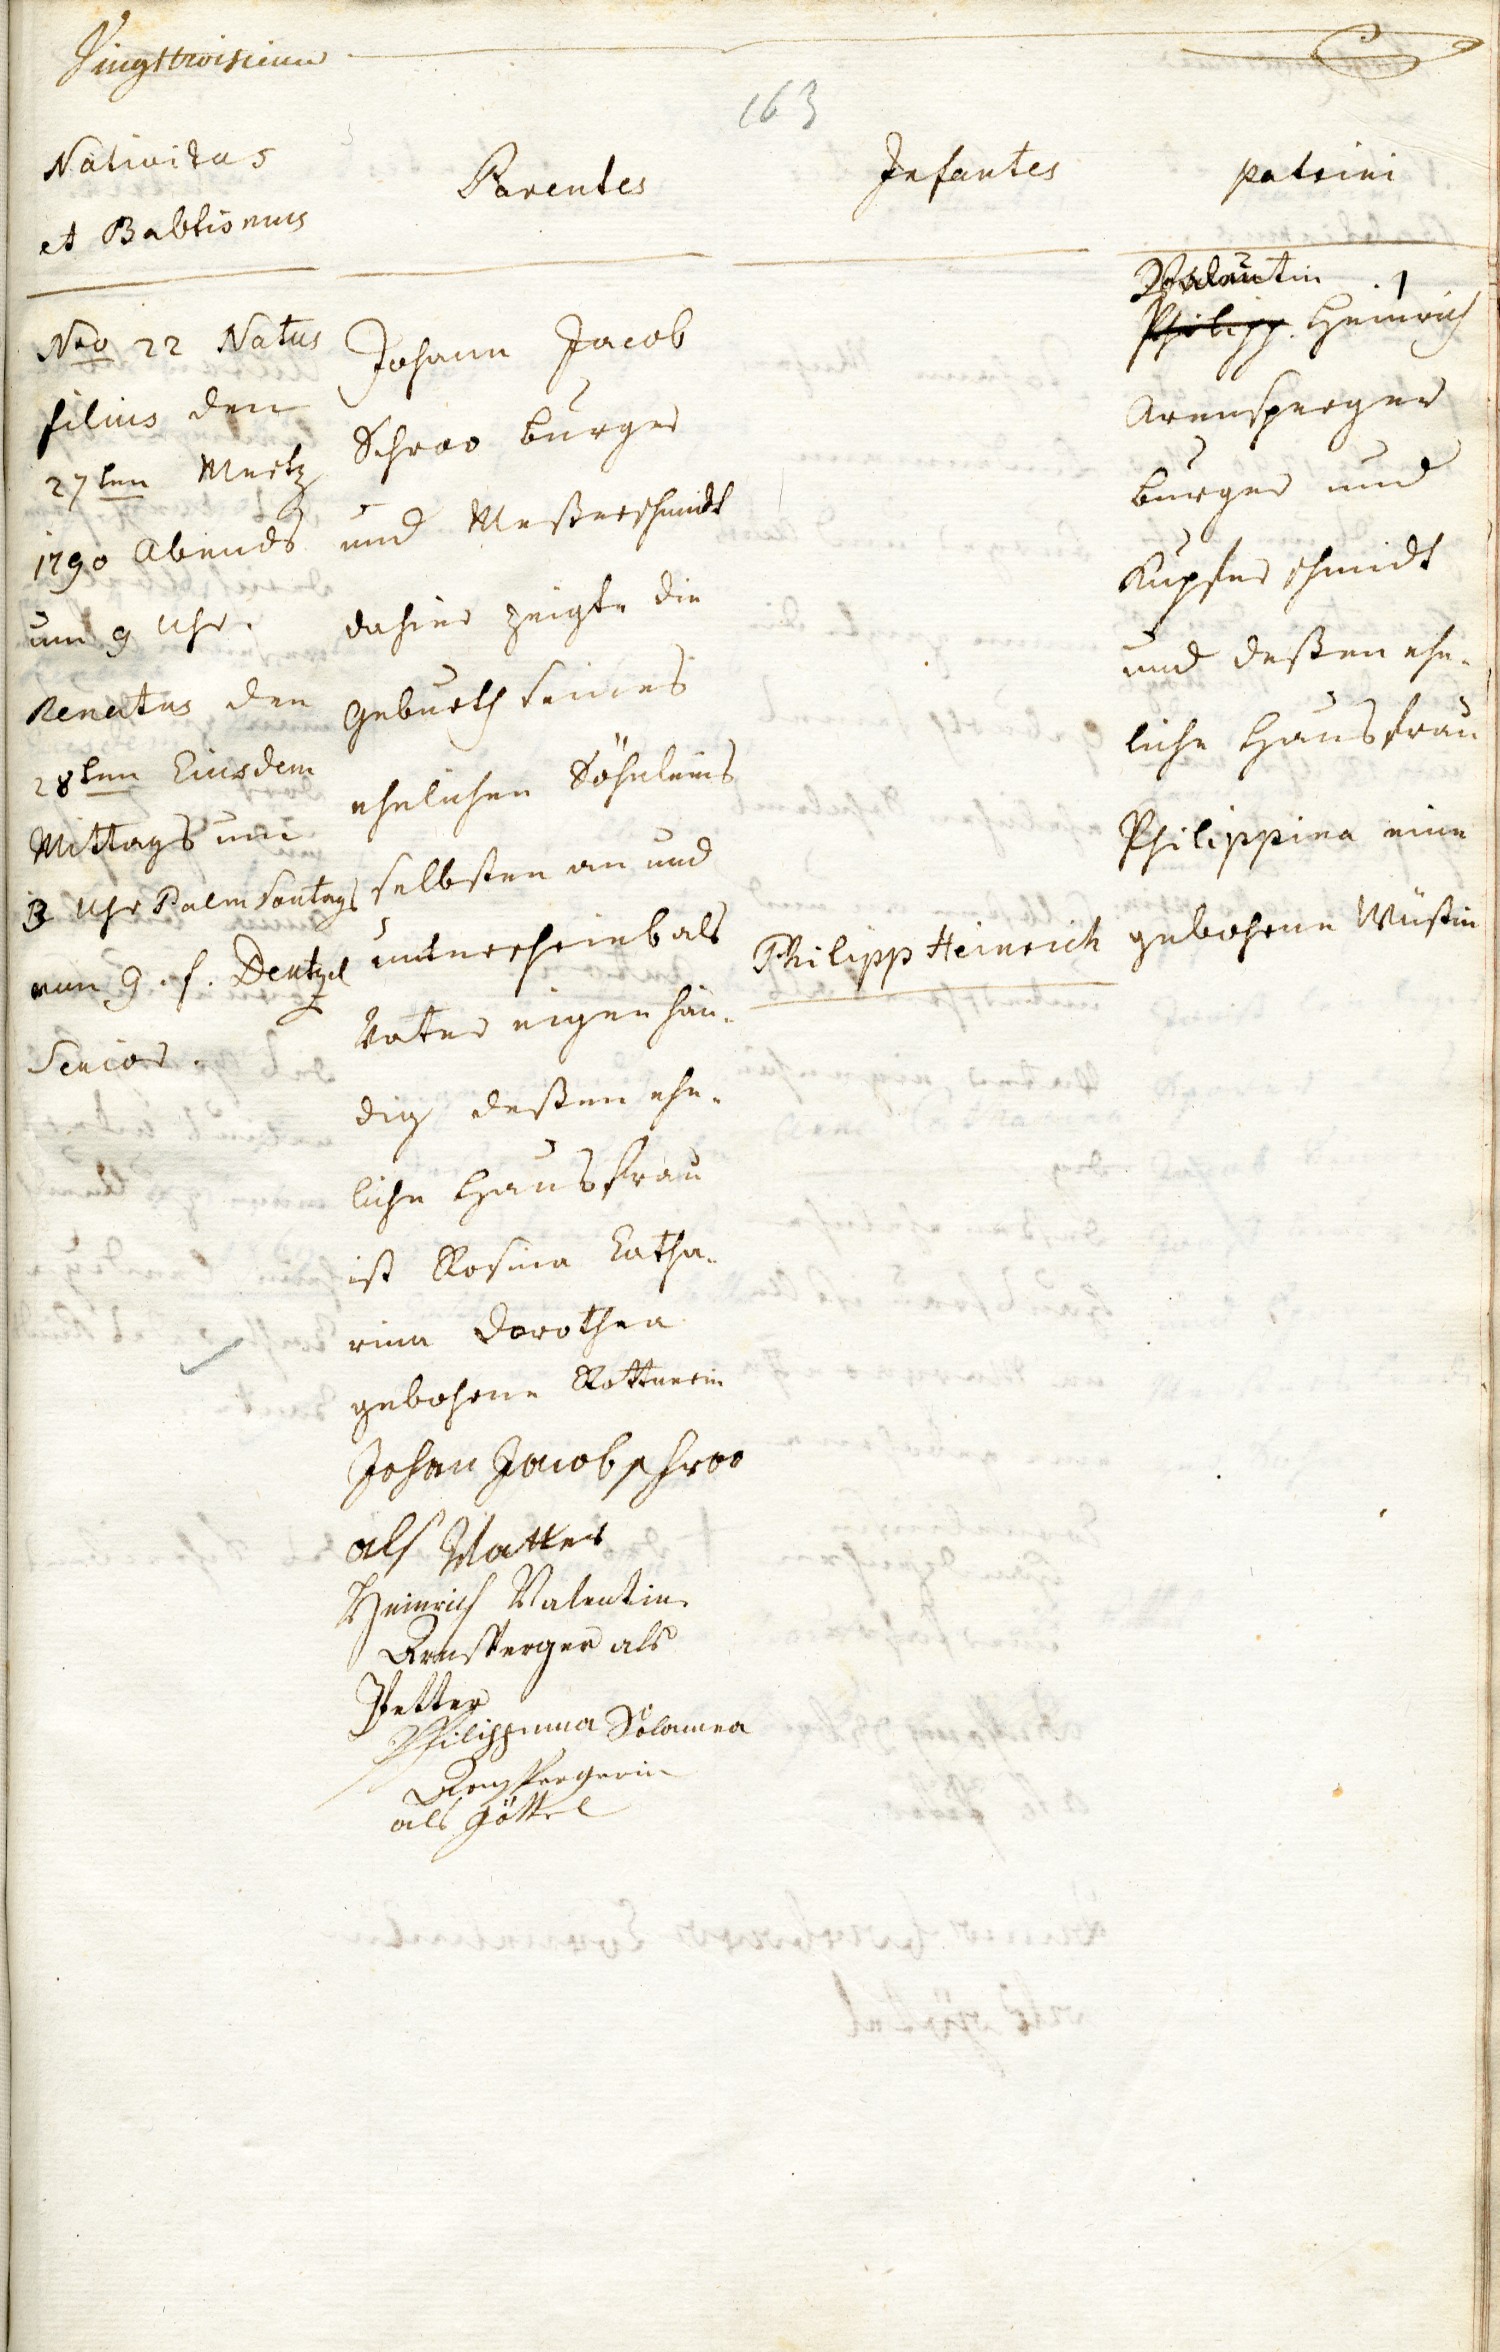 Vingttroisieme
163
Nativitas
et Babtismus
Parentes
Infantes
patrini
Nro 22 Natus
filius den
27ten Mertz
1790 Abends
um 9 Uhr.
Renatus den
28ten Eiusdem
Mittags um
3 Uhr Palm Sontags
von g. f. Dentzel
Senior.
Johann Jacob
Schroo burger
und Meßerschmidt
dahier zeigte die
Geburth seines
ehelichen Söhnleins
selbsten an und
unterschrieb als
Vater eigenhän-
dig deßen ehe-
liche Hausfrau
ist Rosina Catha-
rina Dorothea
gebohrne Rottnerin
Johan Jacob schroo
als Vatter
Heinrich Valentin
Arnsperger als
Petter
Philippinna Solamea
Arnspergerin
als göttel
Philipp Heinrich
2
Valentin 1
Philipp. Heinrich
Arensperger
burger und
Kupferschmidt
und deßen ehe-
liche Hausfrau
Philippina eine
gebohrene Wüstin